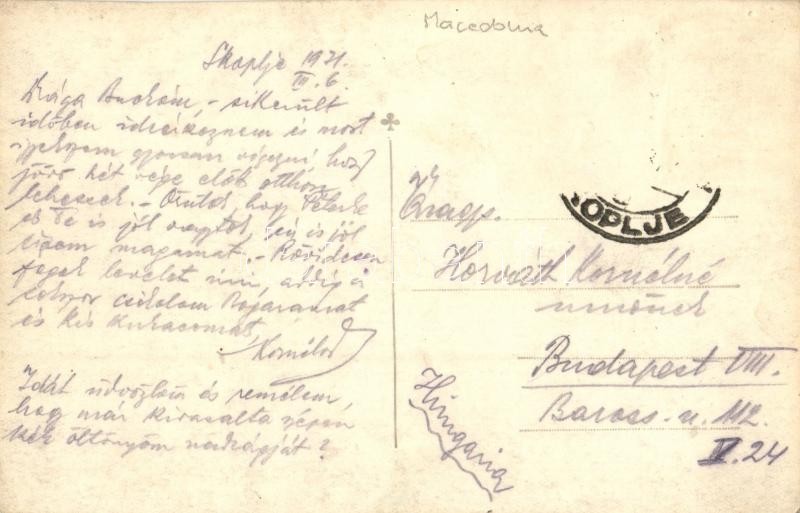 Macedonia
Skoplje 1931.
III. 6.
Drága Buckóm, - sikerült
időben ideérkeznem és most
igyekszem gyorsan végezni, hogy
jövő hét vége előtt otthon
lehessek. - Örülök, hogy Péterke
és Te is jól vagytok, én is jól
érzem magamat. - Rövidesen
fogok levelet írni, addig is
csókolom Bogaramat
és kis kukacomat,
Kornélod
Idát üdvözlöm és remélem,
hogy már kivasalta szépen
kék öltönyöm nadrágját?
OPLJE
Nagys.
Horváth Kornélné
úrnőnek
Budapest VIII.
Baross-u. 112.
V. 24
Hungaria